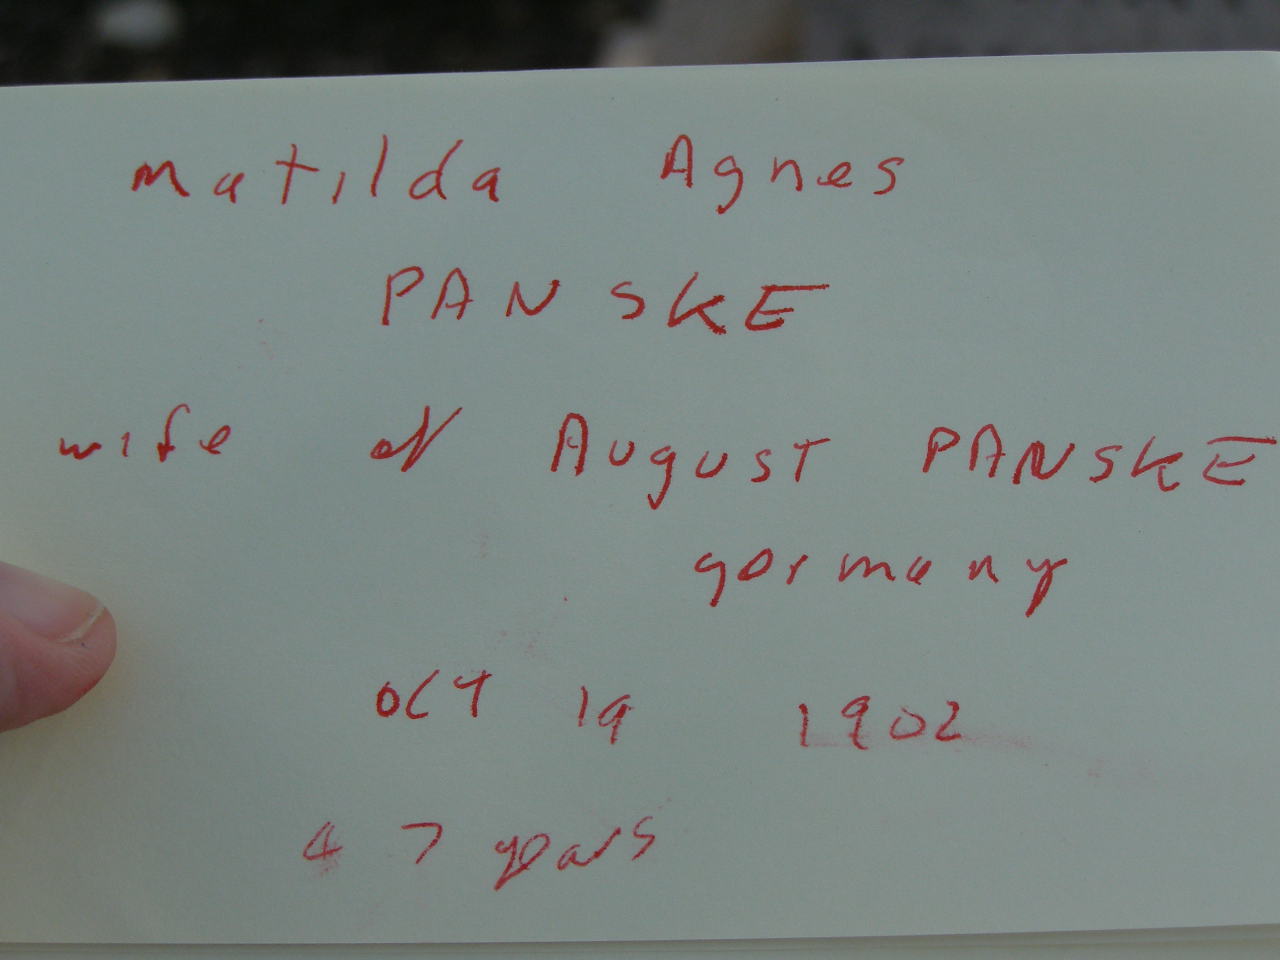 Matilda Agnes
PANSKE
wife of August PANSKE
germany
OCT 19 1902
47 years